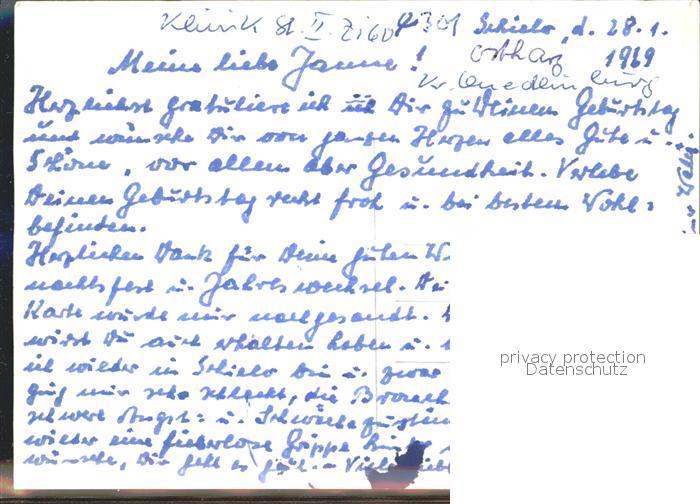 Klinik St. II. Zi 60 
Schielo, d. 28.1.
Ostharz 1969
Meine liebe Janne!
Kr. Quedlinburg
Herzlichst gratuliere ich Dir zu Deinem Geburtstag
und wünsche Dir von ganzen Herzen alles Gute u.
Schöne, vor allem aber Gesundheit. Verlebe
Deinen Geburtstag recht froh u. bei bestem Wohl-
befinden.
Herzlichen Dank für Deine guten
nachtsfest u. Jahreswechsel.
Karte wurde mir nachgesandt.
wirst Du auch erhalten haben u.
ich wieder in Schielo bin u. zwar
ging mir sehr schlecht, die
schwere Angst- u. Schwäche
wieder eine fieberlose Grippe
wünsche, Dir geht es gut. - Viele liebe
privacy protection
Datenschutz